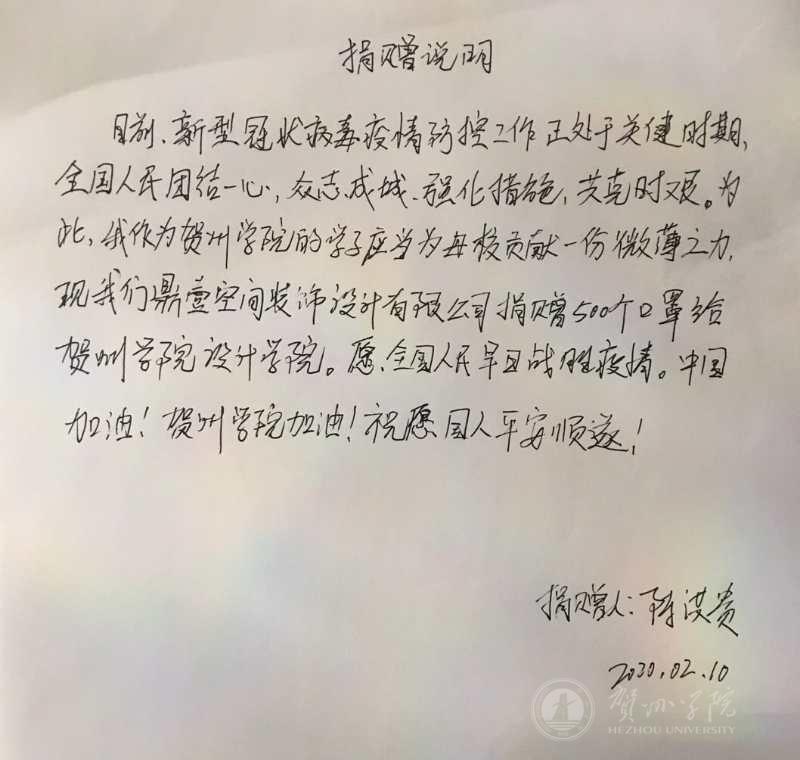 捐赠说明
目前、新型冠状病毒疫情防控工作正处于关健时期,
全国人民团结一心,众志成城、强化措施,共克时艰。为
此,我作为贺州学院的学子应当为母校贡献一份微薄之力,
现我们鼎壹空间装饰设计有限公司捐赠500个口罩给
贺州学院设计学院。愿、全国人民早日战胜疫情。中国
加油!贺州学院加油!祝愿国人平安顺遂!
捐赠人:陈洪贵
2020.02.10
贺州学院
HEZHOU UNIVERSITY